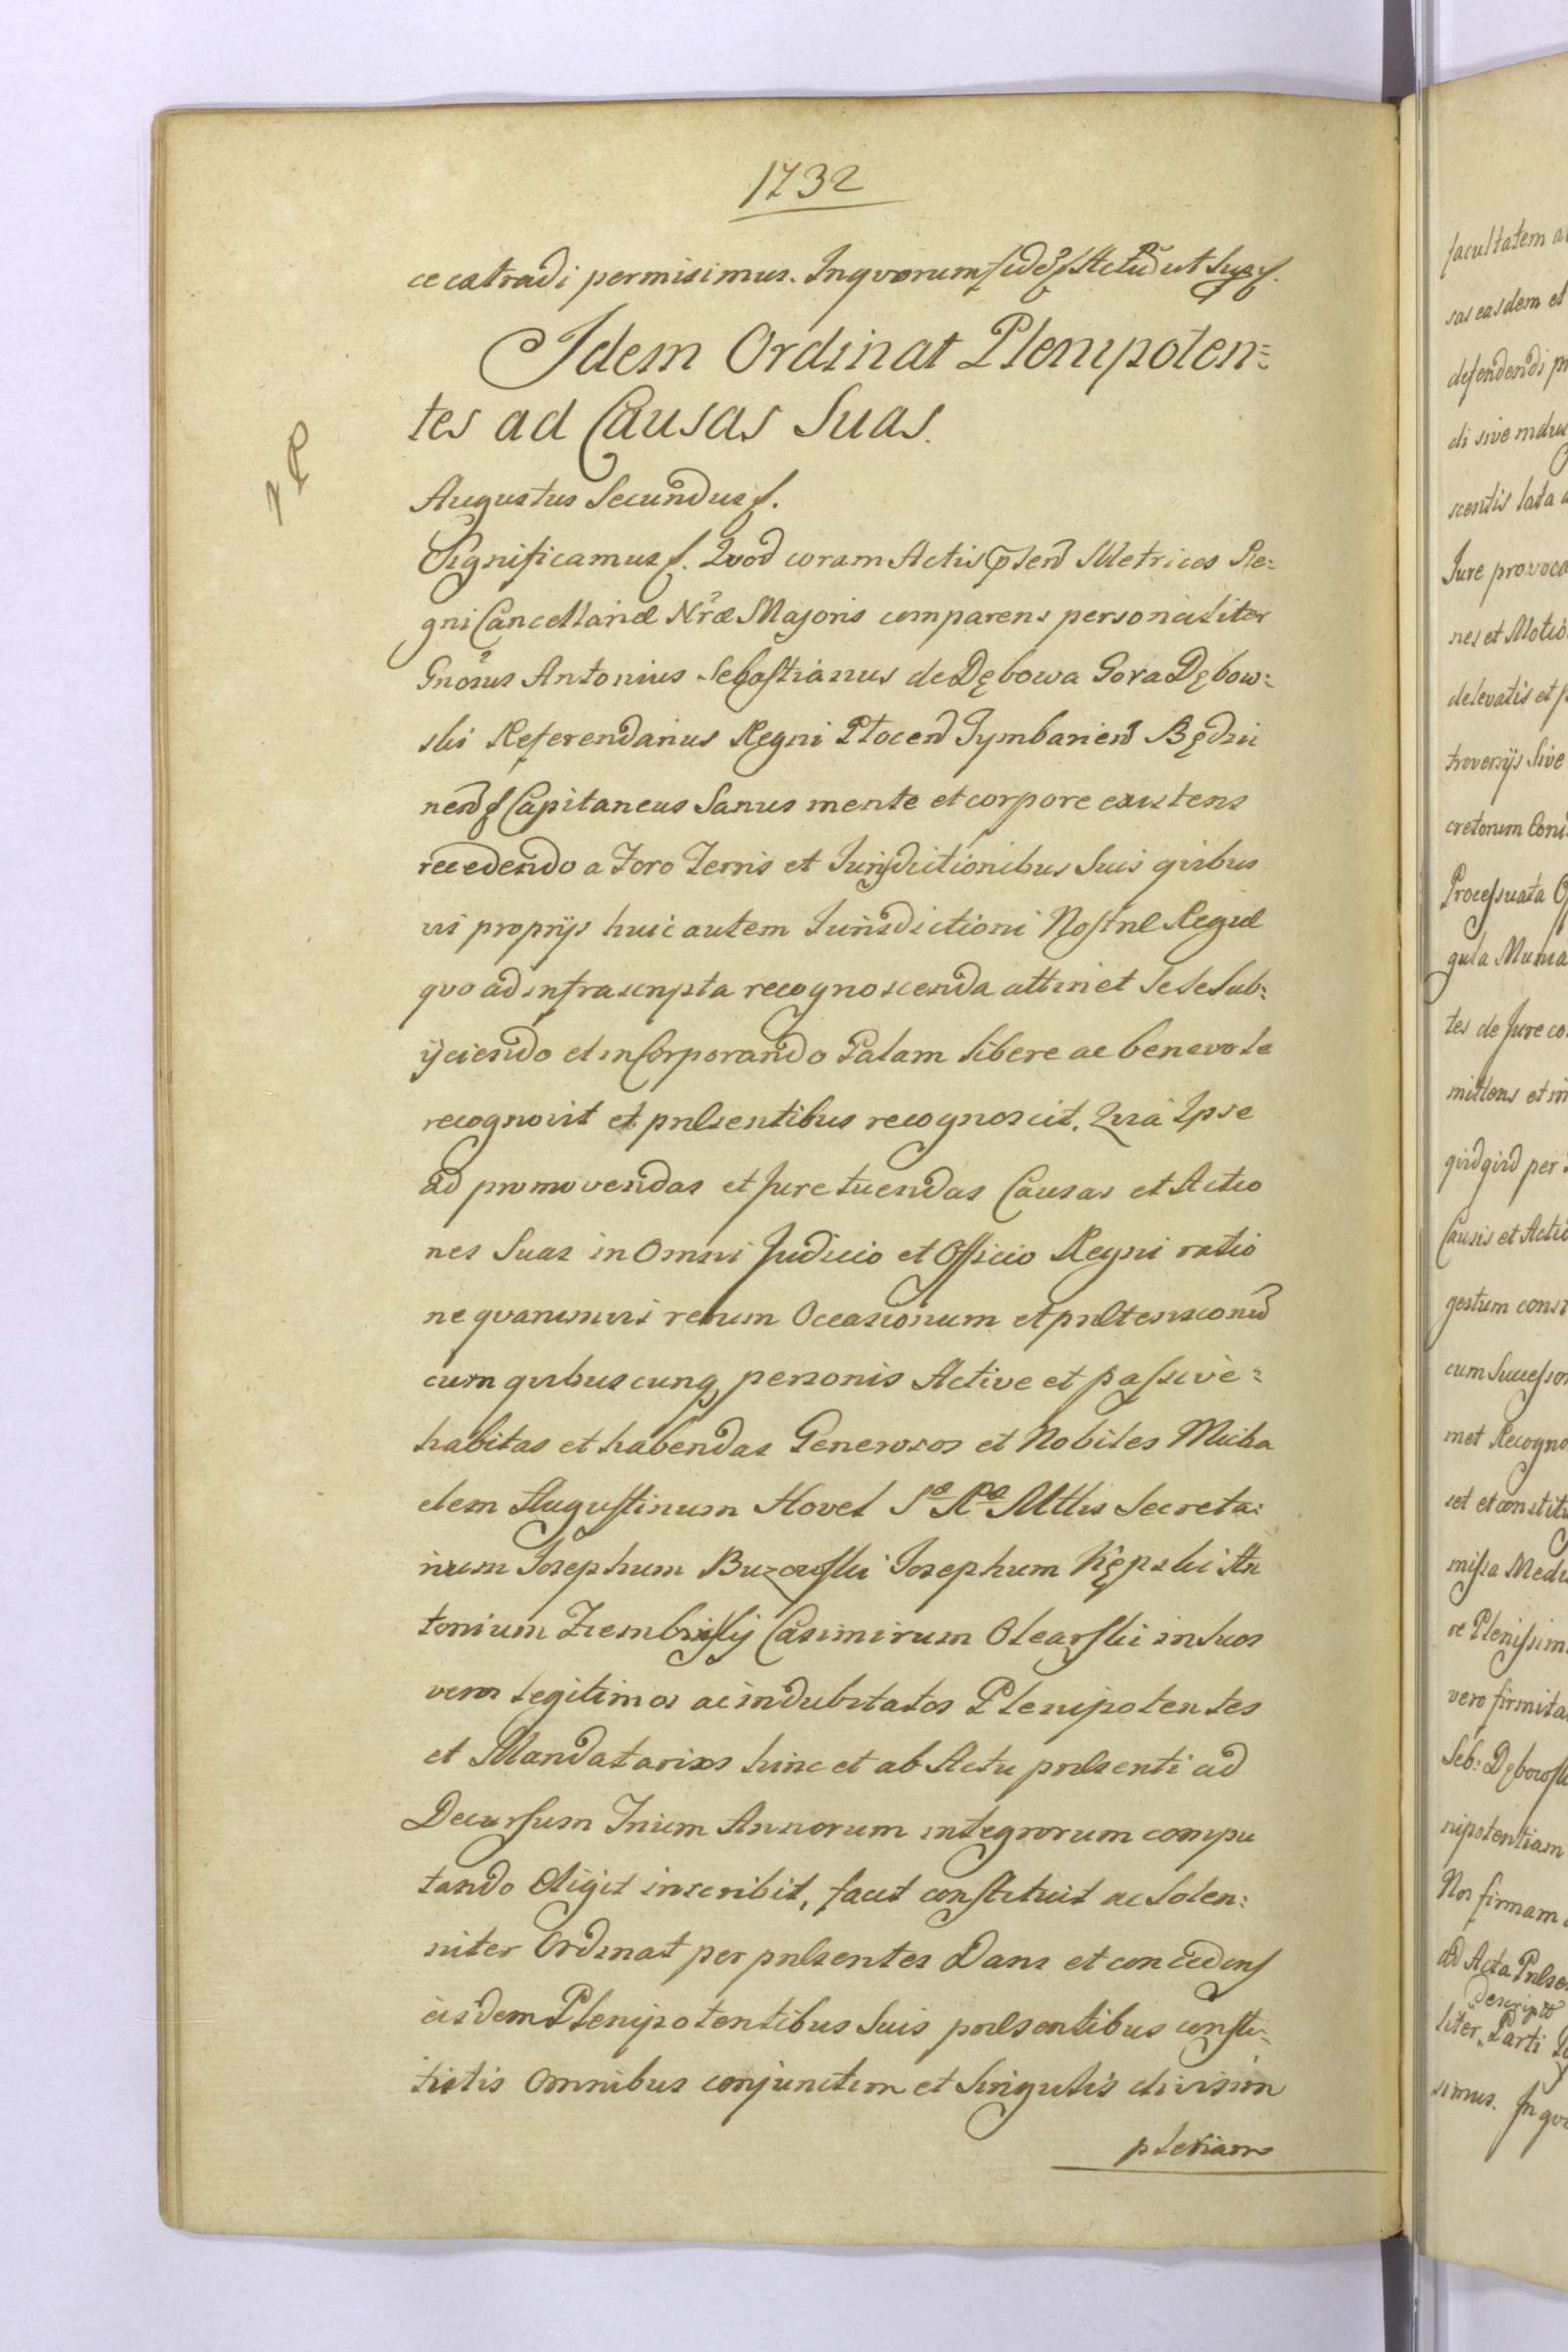 1732
ce extradi permisimus. In qvorum fidẽ f. Actũ ut Supr f.
Idem Ordinat Plenipoten=
tes ad Causas Suas.
Augustus Secundus f.
Significamus f. Qvod coram Actis p̃sen͠ Metrices Re=
gni Cancellariæ Nr̃æ Majoris comparens personaliter
Gnõsus Antonius Sebastianus de Dębowa Gora Dębow=
ski Referendarius Regni Plocen͠ Tymbarien͠ Będzi
nen͠ f Capitaneus Sanus mente et corpore existens
recedendo a Foro Terris et Jurisdictionibus Suis qvibus
vis proprijs huic autem Jurisdictioni Nostræ Regiæ
qvo ad infrascripta recognoscenda attinet Sese Sub=
ijciendo et inCorporando Palam libere ac benevole
recognovit et præsentibus recognoscit. Qvia Ipse
ad promovendas et Jure tuendas Causas et Actio
nes Suas in Omni Judicio et Officio Regni ratio
ne qvarumvis rerum Occasionum et prætensionũ
cum qvibuscunq personis Active et passive=
habitas et habendas Generosos et Nobiles Micha
elem Augustinum Hovel Sæ Ræ Mttis Secreta=
rium Josephum Buzowski Josephum Kępski An
tonium Ziembinskj Casimirum Olearski in Suos
veros legitimos ac indubitatos Plenipotentes
et Mandatarios hinc et ab Actu præsenti ad
Decursum Trium Annorum integrorum compu
tando Eligit inscribit, facit constituit ac Solen=
niter Ordinat per præsentes Dans et concedens
eisdem Plenipotentibus Suis præsentibus consti=
tutis Omnibus conjunctim et Singulis divisim
plenam
facultatem a
sas easdem et
defendendi pr
di sive indu
scentis lata a
Jure provoca
nes et Motio
delevatis et p
troversijs Sive
cretorum Con
Processuata O
gula Munia
tes de Jure co
mittens et in
qvidqvid per
Causis et Actio
gestum const
cum Successor
met Recogno
set et constitu
missa Medi
re Plenissim
vero firmita
Seb: Dębowsk
nipotentiam
Nos firmam
ad Acta Præse
Descript
liter Parti
simus. In qvo